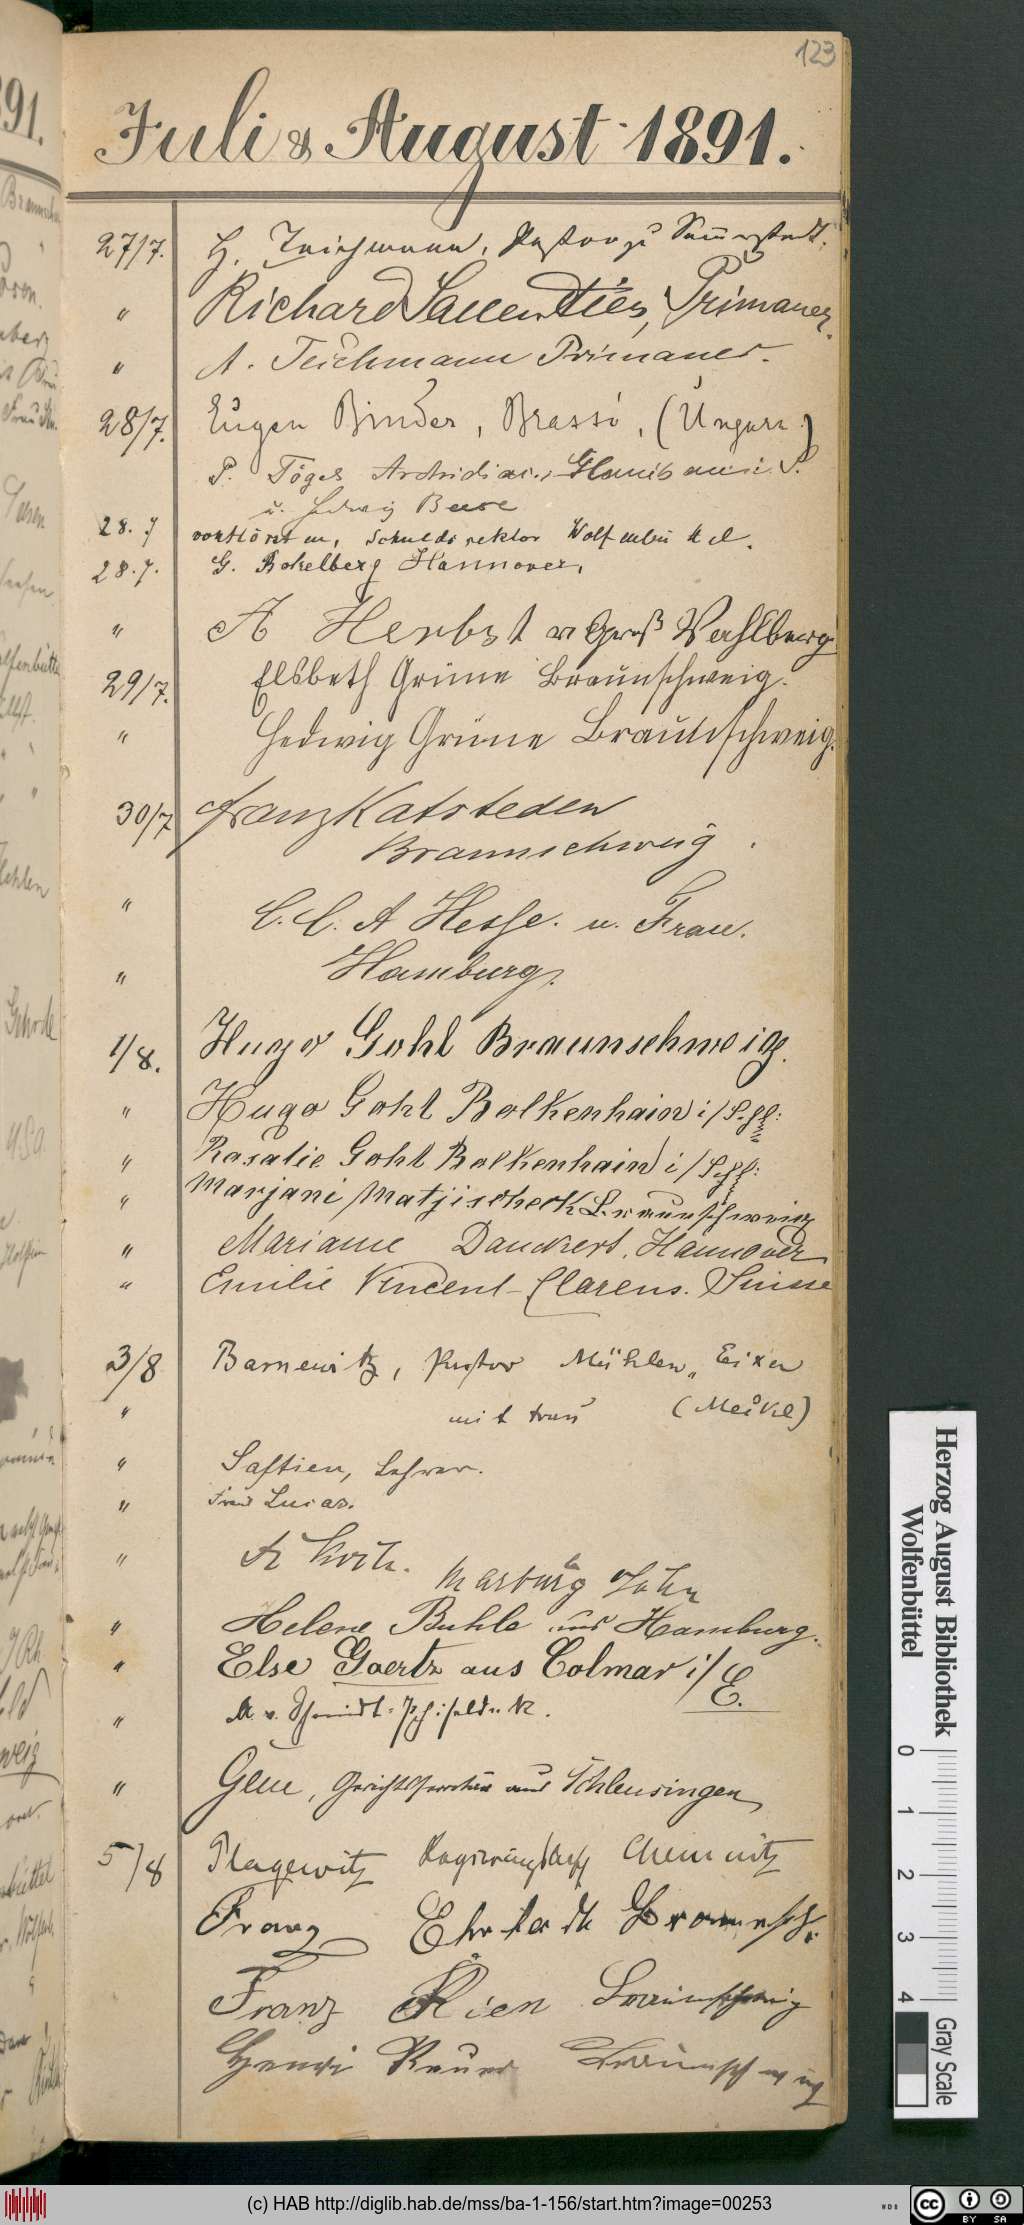 123
Juli & August 1891.
27/7. H. Teichmann, Pastor zu
" Richard Primaner.
" A. Teichmann Primaner.
28/7. Eugen Binder, Brassó, (Ungarn)
P.
u. Hedwig
28. 7 Schuldirektor Wolfenbüttel.
28. 7. G. Bokelberg Hannover,
" A Herbst Groß Vahlberg
29/7. Elsbeth Grüne Braunschweig.
" Hedwig Grüne Braunschweig.
30/7 Franz Katsteden
Braunschweig.
" C. C. A Hesse. u. Frau.
" Hamburg.
1/8. Hugo Gohl Braunschweig.
" Hugo Gohl Bolkenhain i/Schl:
" Rosalie Gohl Bolkenhain i/Schl:
" Marjani Matjischeck Braunschweig
" Marianne Danckert. Hannover
" Emilie Vincent - Clarens. Suisse
3/8 Barnewitz, Pastor Mühlen Eixen
" mit Frau
" Saftien, Lehrer.
" Frau Lucas.
" Marburg Lahn
" Helene Buhle aus Hamburg.
" Else Goertz aus Colmar i/E.
" v. Schmidt-Phiseldeck.
" aus Schleusingen
5/8 Plagewitz Chemnitz
Franz Ehrhardt Braunschw.
Franz Rien Braunschweig
Henri Braunschweig
Herzog August Bibliothek
Wolfenbüttel
0 1 2 3 4
Gray Scale
(c) HAB http://diglib.hab.de/mss/ba-1-156/start.htm?image=00253
WDB
cc BY SA